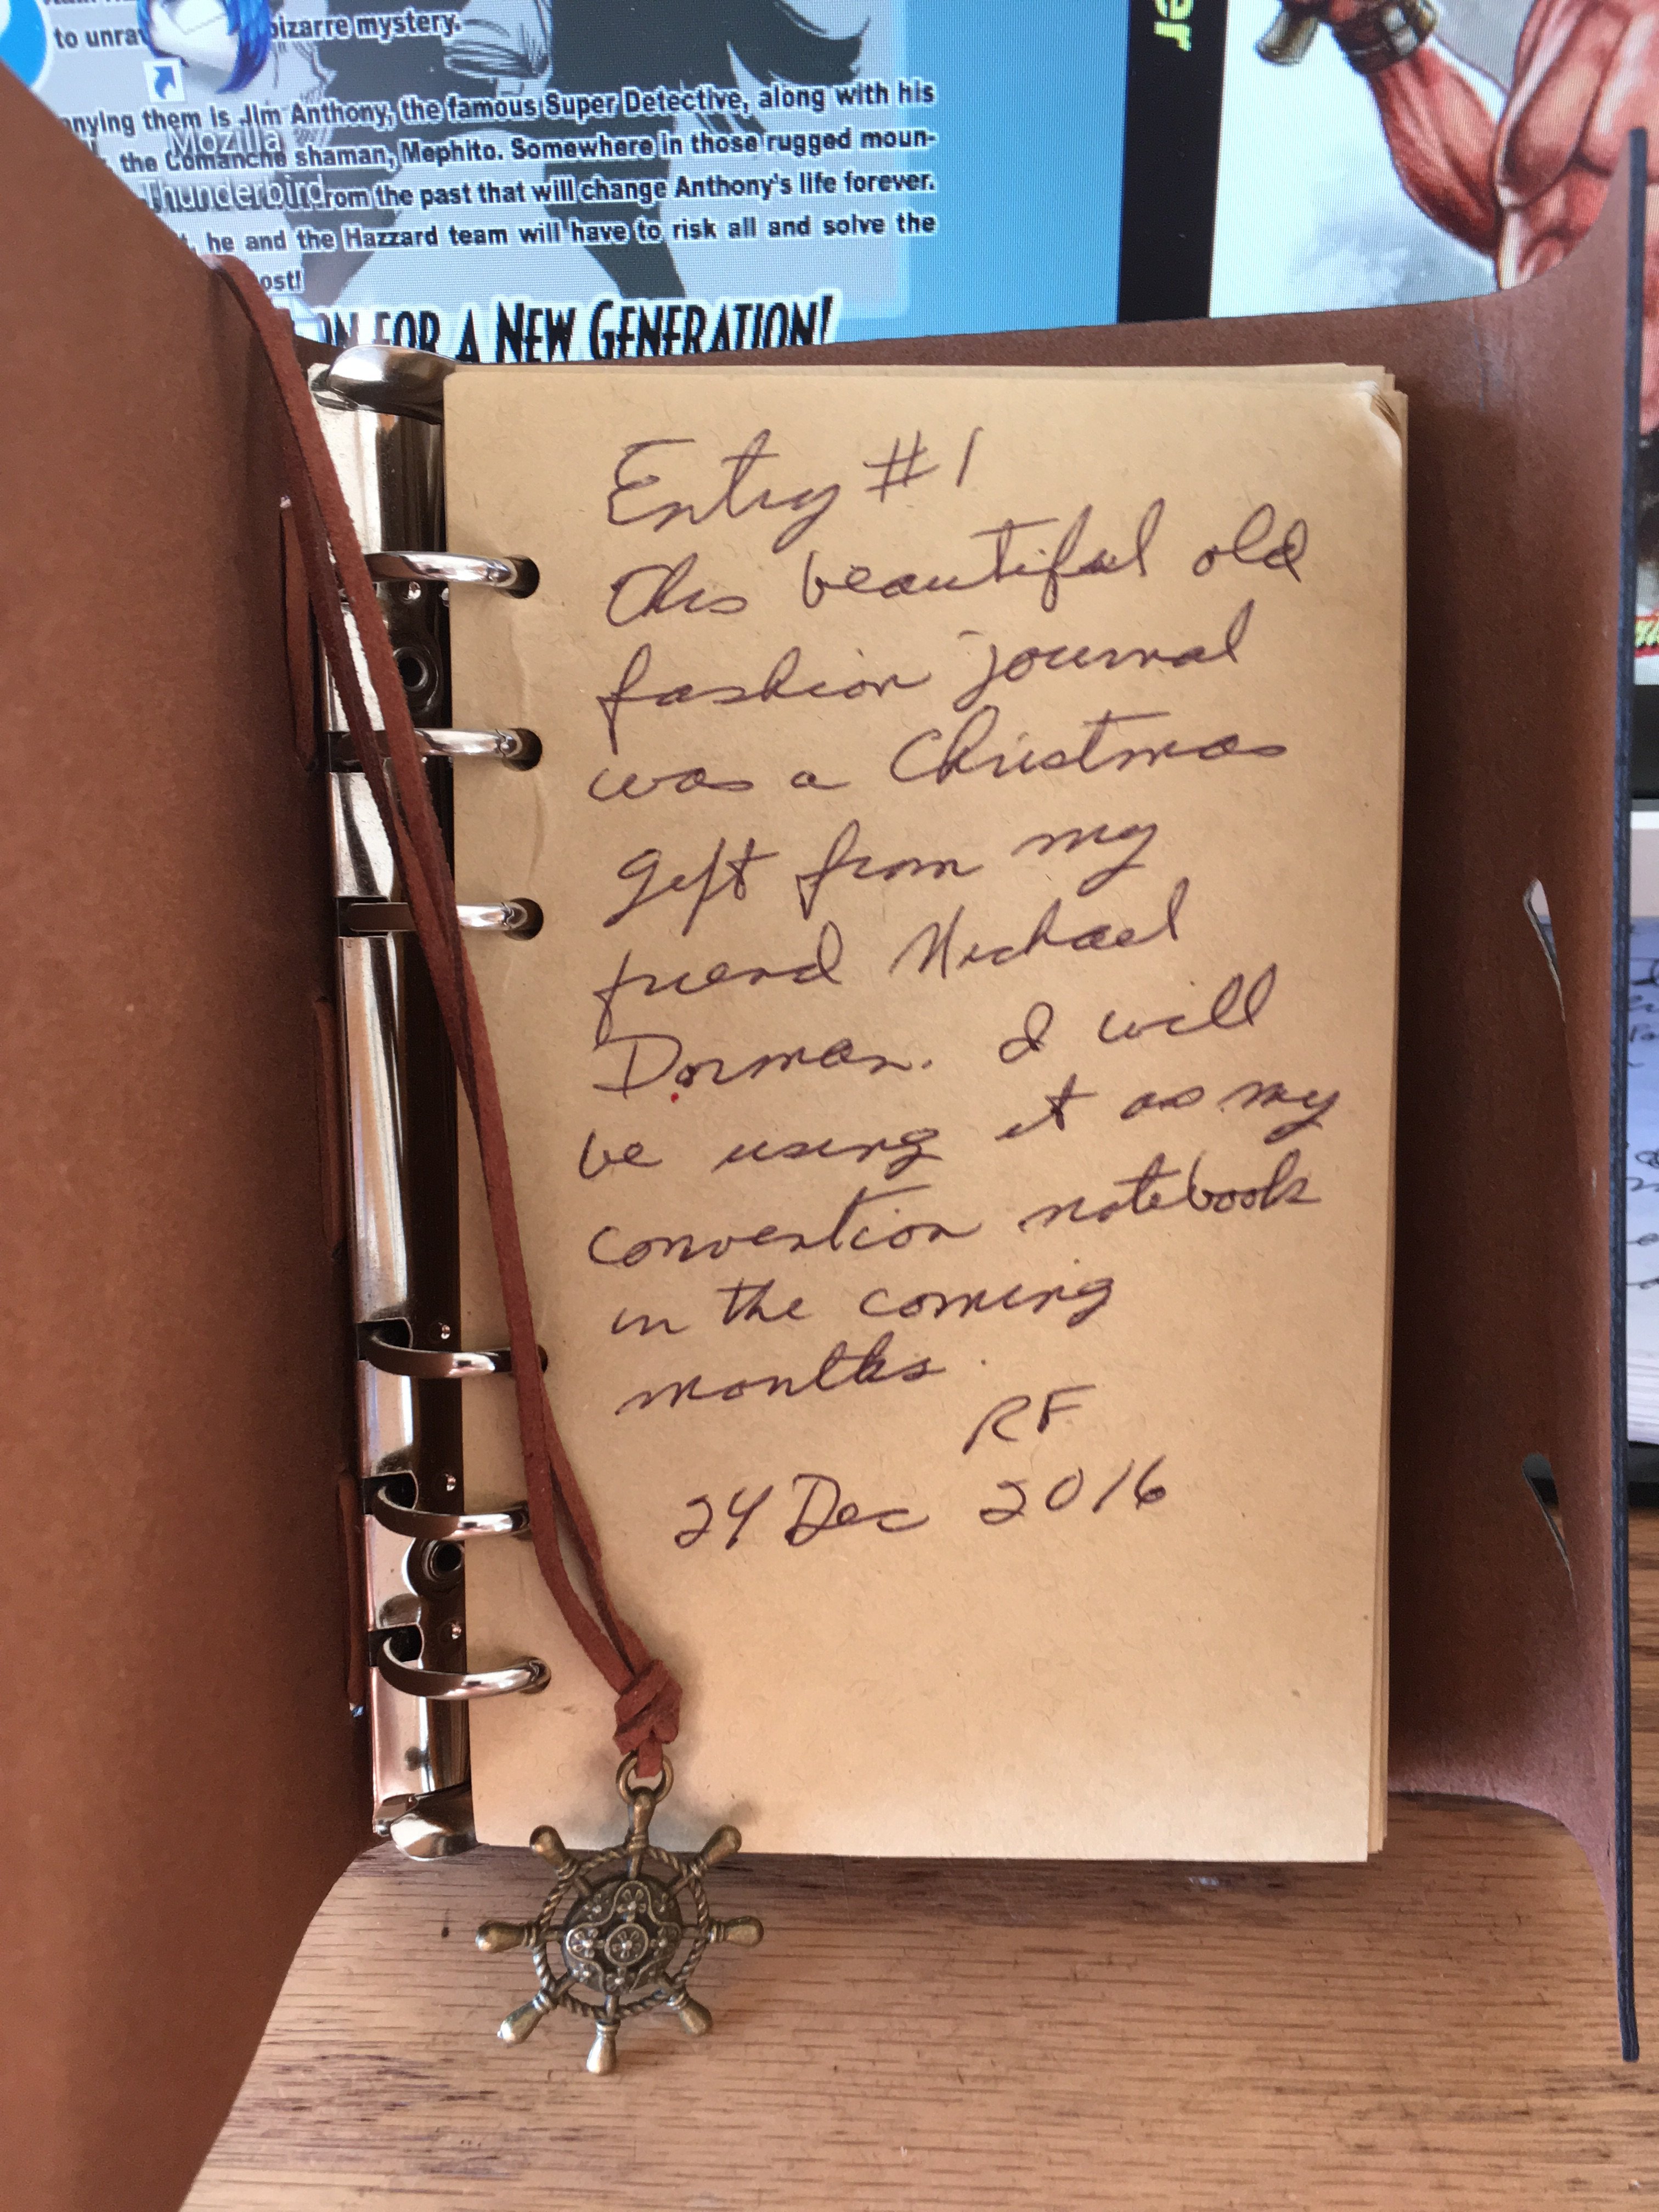 to unra bizarre mystery.
nying them is Jim Anthony, the famous Super Detective, along with his
Mozilla
the Comanche shaman, Mephito. Somewhere in those rugged moun-
Thunderbird
rom the past that will change Anthony's life forever.
he and the Hazzard team will have to risk all and solve the
ost!
ON FOR A NEW GENERATION!
er
Entry #1
This beautiful old
fashion journal
was a Christmas
gift from my
friend Michael
Dorman. I will
be using it as my
convention notebook
in the coming
months.
RF
24 Dec 2016